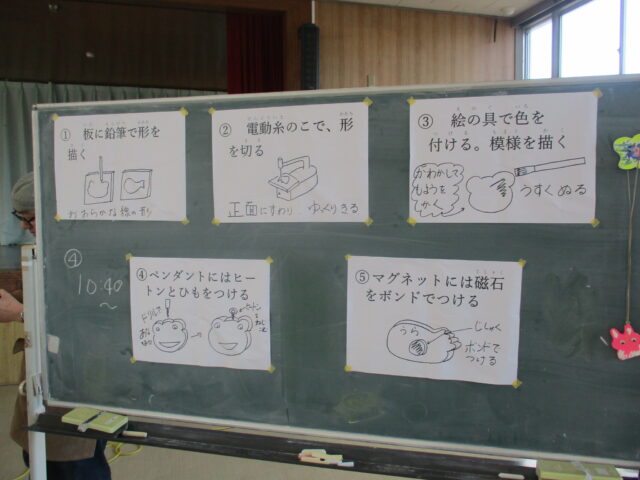 ① 板に鉛筆で形を
描く
② 電動糸のこで、形
を切る
正面にすわり ゆっくりきる
③ 絵の具で色を
付ける。模様を描く
かわかして
もようを
かく
うすくぬる
④
10:40
～
④ペンダントにはヒー
トンとひもをつける
ドリルで
⑤マグネットには磁石
をボンドでつける
うら
じしゃく
ボンドで
つける